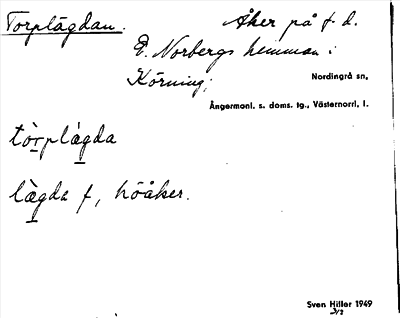 Torplägdan. Åker på f. d.
E. Norbergs hemman i
Körning;
Nordingrå sn,
Ångermanl. s. doms. tg., Västernorrl. l.
tòrplàgda
làgda f, höåker.
Sven Hiller 1949